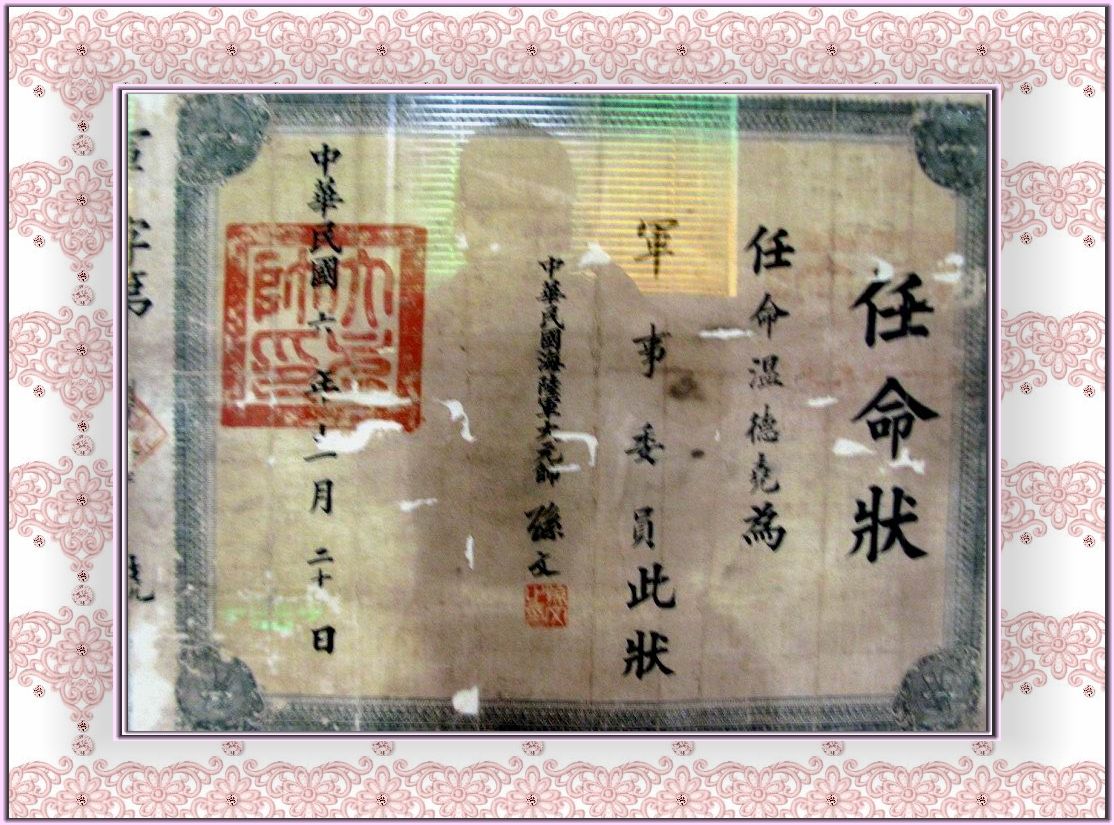 任命狀
任命溫德堯為
軍事委員此狀
中華民國海陸軍大元帥孫文
孫文之印
中華民國六年十二月二十日
大元帥印
字第
號